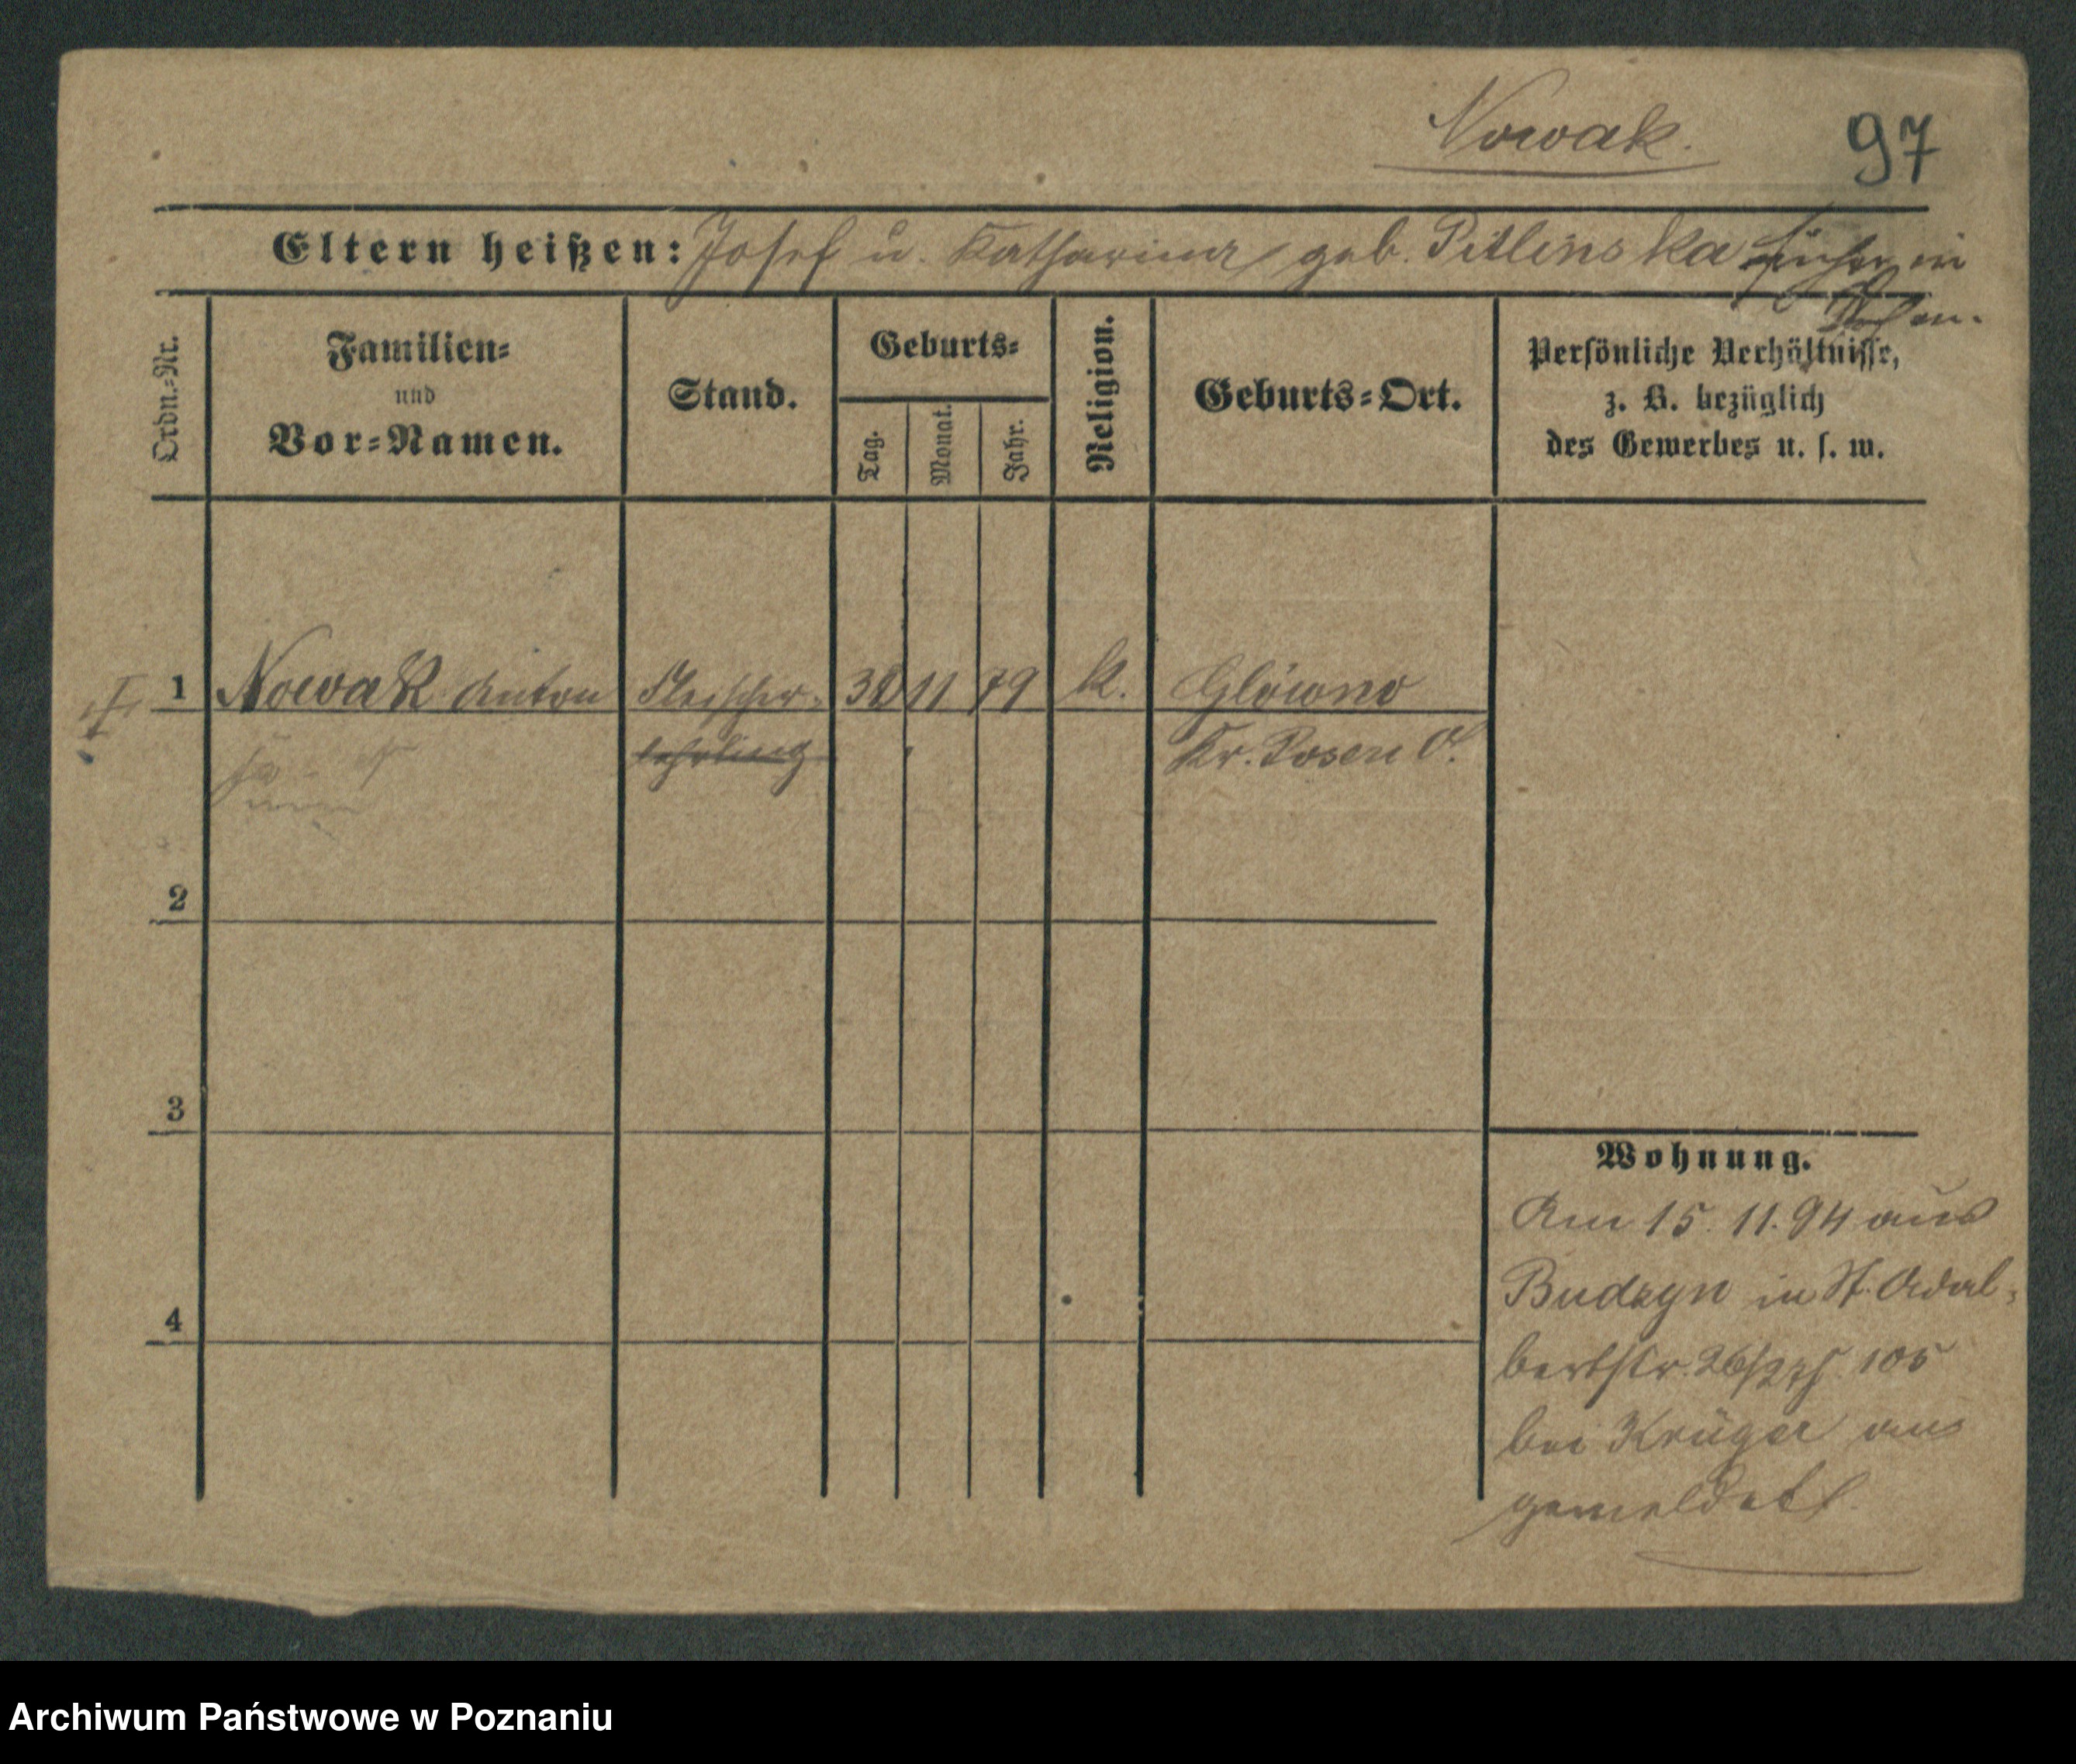 Nowak.
97
Eltern heißen: Josef u. Katharina geb. Pitlinska früher in
Posen.
Ordn.-Nr.
Familien-
und
Vor-Namen.
Stand.
Geburts-
Tag.
Monat.
Jahr.
Religion.
Geburts-Ort.
Persönliche Verhältnisse,
z. B. bezüglich
des Gewerbes u. s. w.
1 Nowak Anton Fleischer- 11 79 k. Glówno
lehrling Kr. Posen O.
2
3
4
Wohnung.
Am 15. 11. 94 aus
Budzyn in St. Adal-
bertstr. 26/27 105
bei Krüger an
gemeldet.
Archiwum Państwowe w Poznaniu